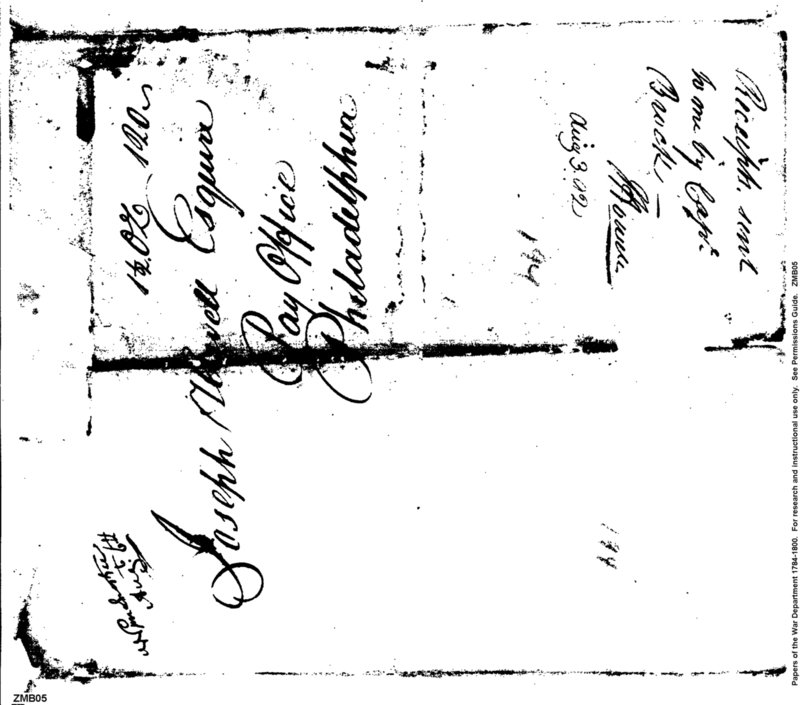 1½ OZ 120
Joseph Howell Esquire
Pay Office
Philadelphia
Receipts sent
to me by Capt
Aug 3. 02
194
194
ZMB05
Papers of the War Department 1784-1800. For research and instructional use only. See Permissions Guide. ZMB05